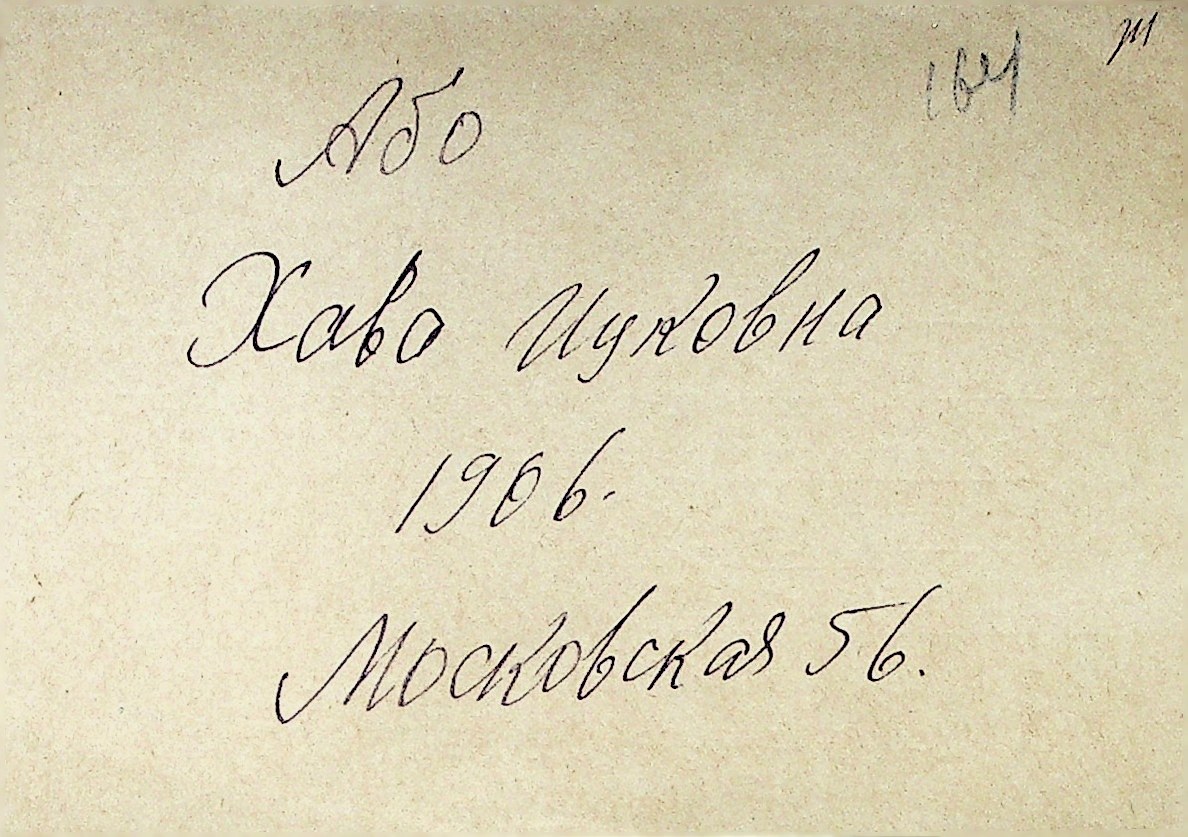 164
Або
Хава Ицковна
1906.
Московская 56.